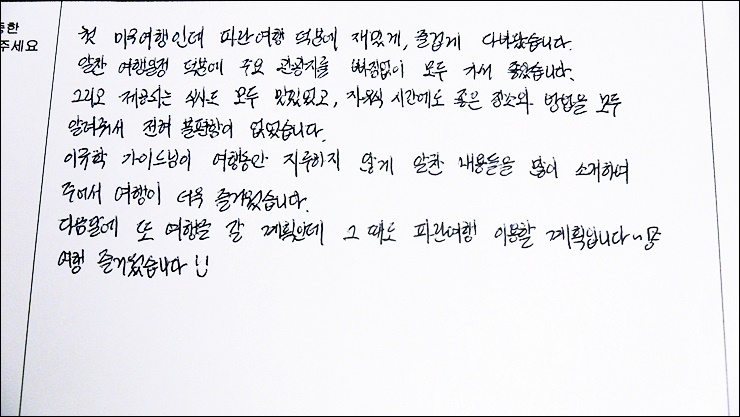 중한
주세요
첫 미국여행인데 파란여행 덕분에 재밌게, 즐겁게 다녀왔습니다.
알찬 여행일정 덕분에 주요 관광지를 빠짐없이 모두 가서 좋았습니다.
그리고 제공되는 식사도 모두 맛있었고, 자유식 시간에도 좋은 장소와 방법을 모두
알려줘서 전혀 불편함이 없었습니다.
가이드님이 여행동안 지루하지 않게 알찬 내용들을 많이 소개하여
주어서 여행이 더욱 즐거웠습니다.
다음달에 또 여행을 갈 계획인데 그 때도 파란여행 이용할 계획입니다~
여행 즐거웠습니다